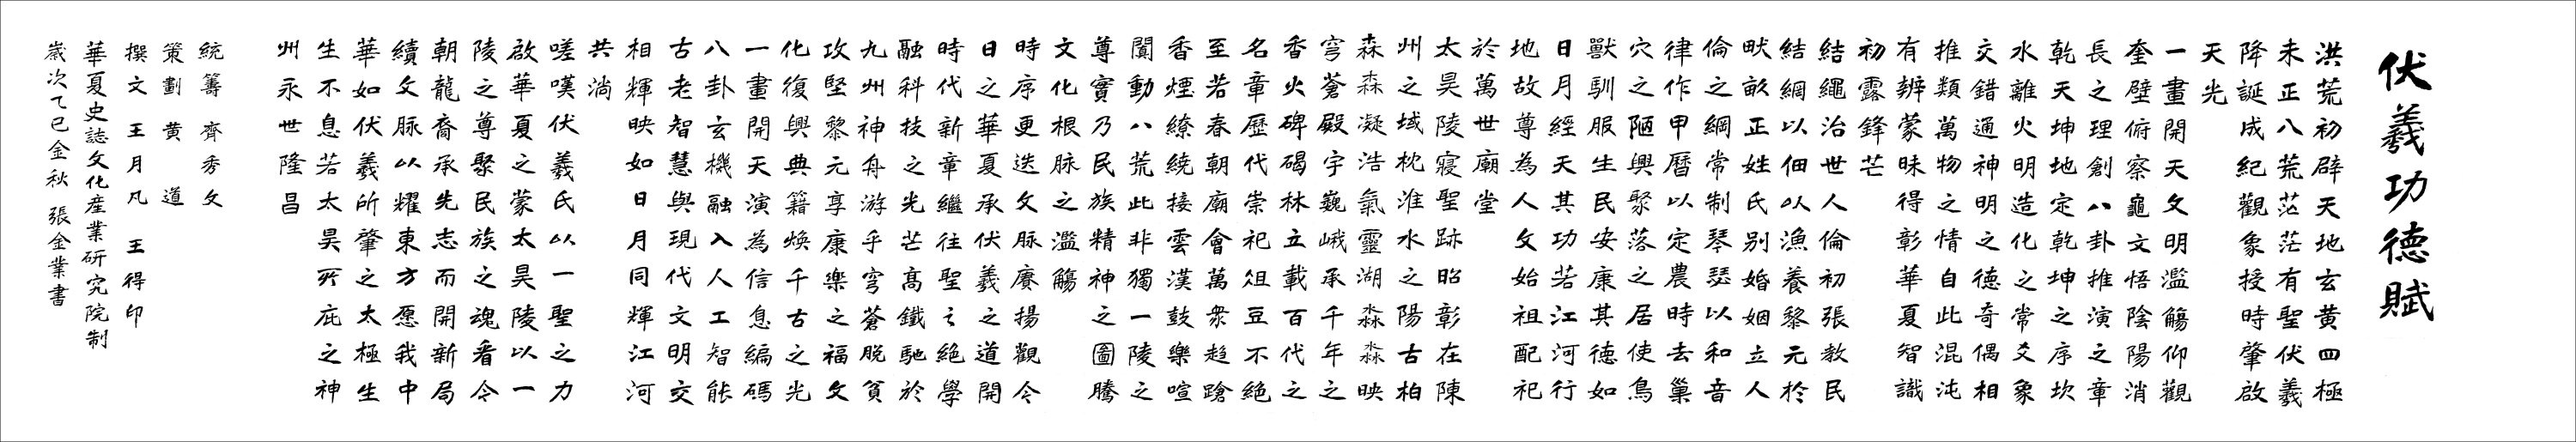 伏羲功德賦
洪荒初辟天地玄黃四極
未正八荒茫茫有聖伏羲
降誕成紀觀象授時肇啟
天光
一畫開天文明濫觴仰觀
奎壁俯察龜文悟陰陽消
長之理創八卦推演之章
乾天坤地定乾坤之序坎
水離火明造化之常爻象
交錯通神明之德奇偶相
推類萬物之情自此混沌
有辨蒙昧得彰華夏智識
初露鋒芒
結繩治世人倫初張教民
結網以佃以漁養黎元於
畎畝正姓氏別婚姻立人
倫之綱常制琴瑟以和音
律作甲曆以定農時去巢
穴之陋興聚落之居使鳥
獸馴服生民安康其德如
日月經天其功若江河行
地故尊為人文始祖配祀
於萬世廟堂
太昊陵寢聖跡昭彰在陳
州之域枕淮水之陽古柏
森森凝浩氣靈湖淼淼映
穹蒼殿宇巍峨承千年之
香火碑碣林立載百代之
名章歷代崇祀俎豆不絕
至若春朝廟會萬眾趨蹌
香煙繚繞接雲漢鼓樂喧
闐動八荒此非獨一陵之
尊實乃民族精神之圖騰
文化根脉之濫觴
時序更迭文脉賡揚觀今
日之華夏承伏羲之道開
時代新章繼往聖之絕學
融科技之光芒高鐵馳於
九州神舟游乎穹蒼脫貧
攻堅黎元享康樂之福文
化復興典籍煥千古之光
一畫開天演為信息編碼
八卦玄機融入人工智能
古老智慧與現代文明交
相輝映如日月同輝江河
共淌
嗟嘆伏羲氏以一聖之力
啟華夏之蒙太昊陵以一
陵之尊聚民族之魂看今
朝龍裔承先志而開新局
續文脉以耀東方愿我中
華如伏羲所肇之太極生
生不息若太昊所庇之神
州永世隆昌
統籌 齊秀文
策劃 黃 道
撰文 王月凡 王得印
華夏史誌文化産業研究院制
歲次乙巳金秋 張金業書